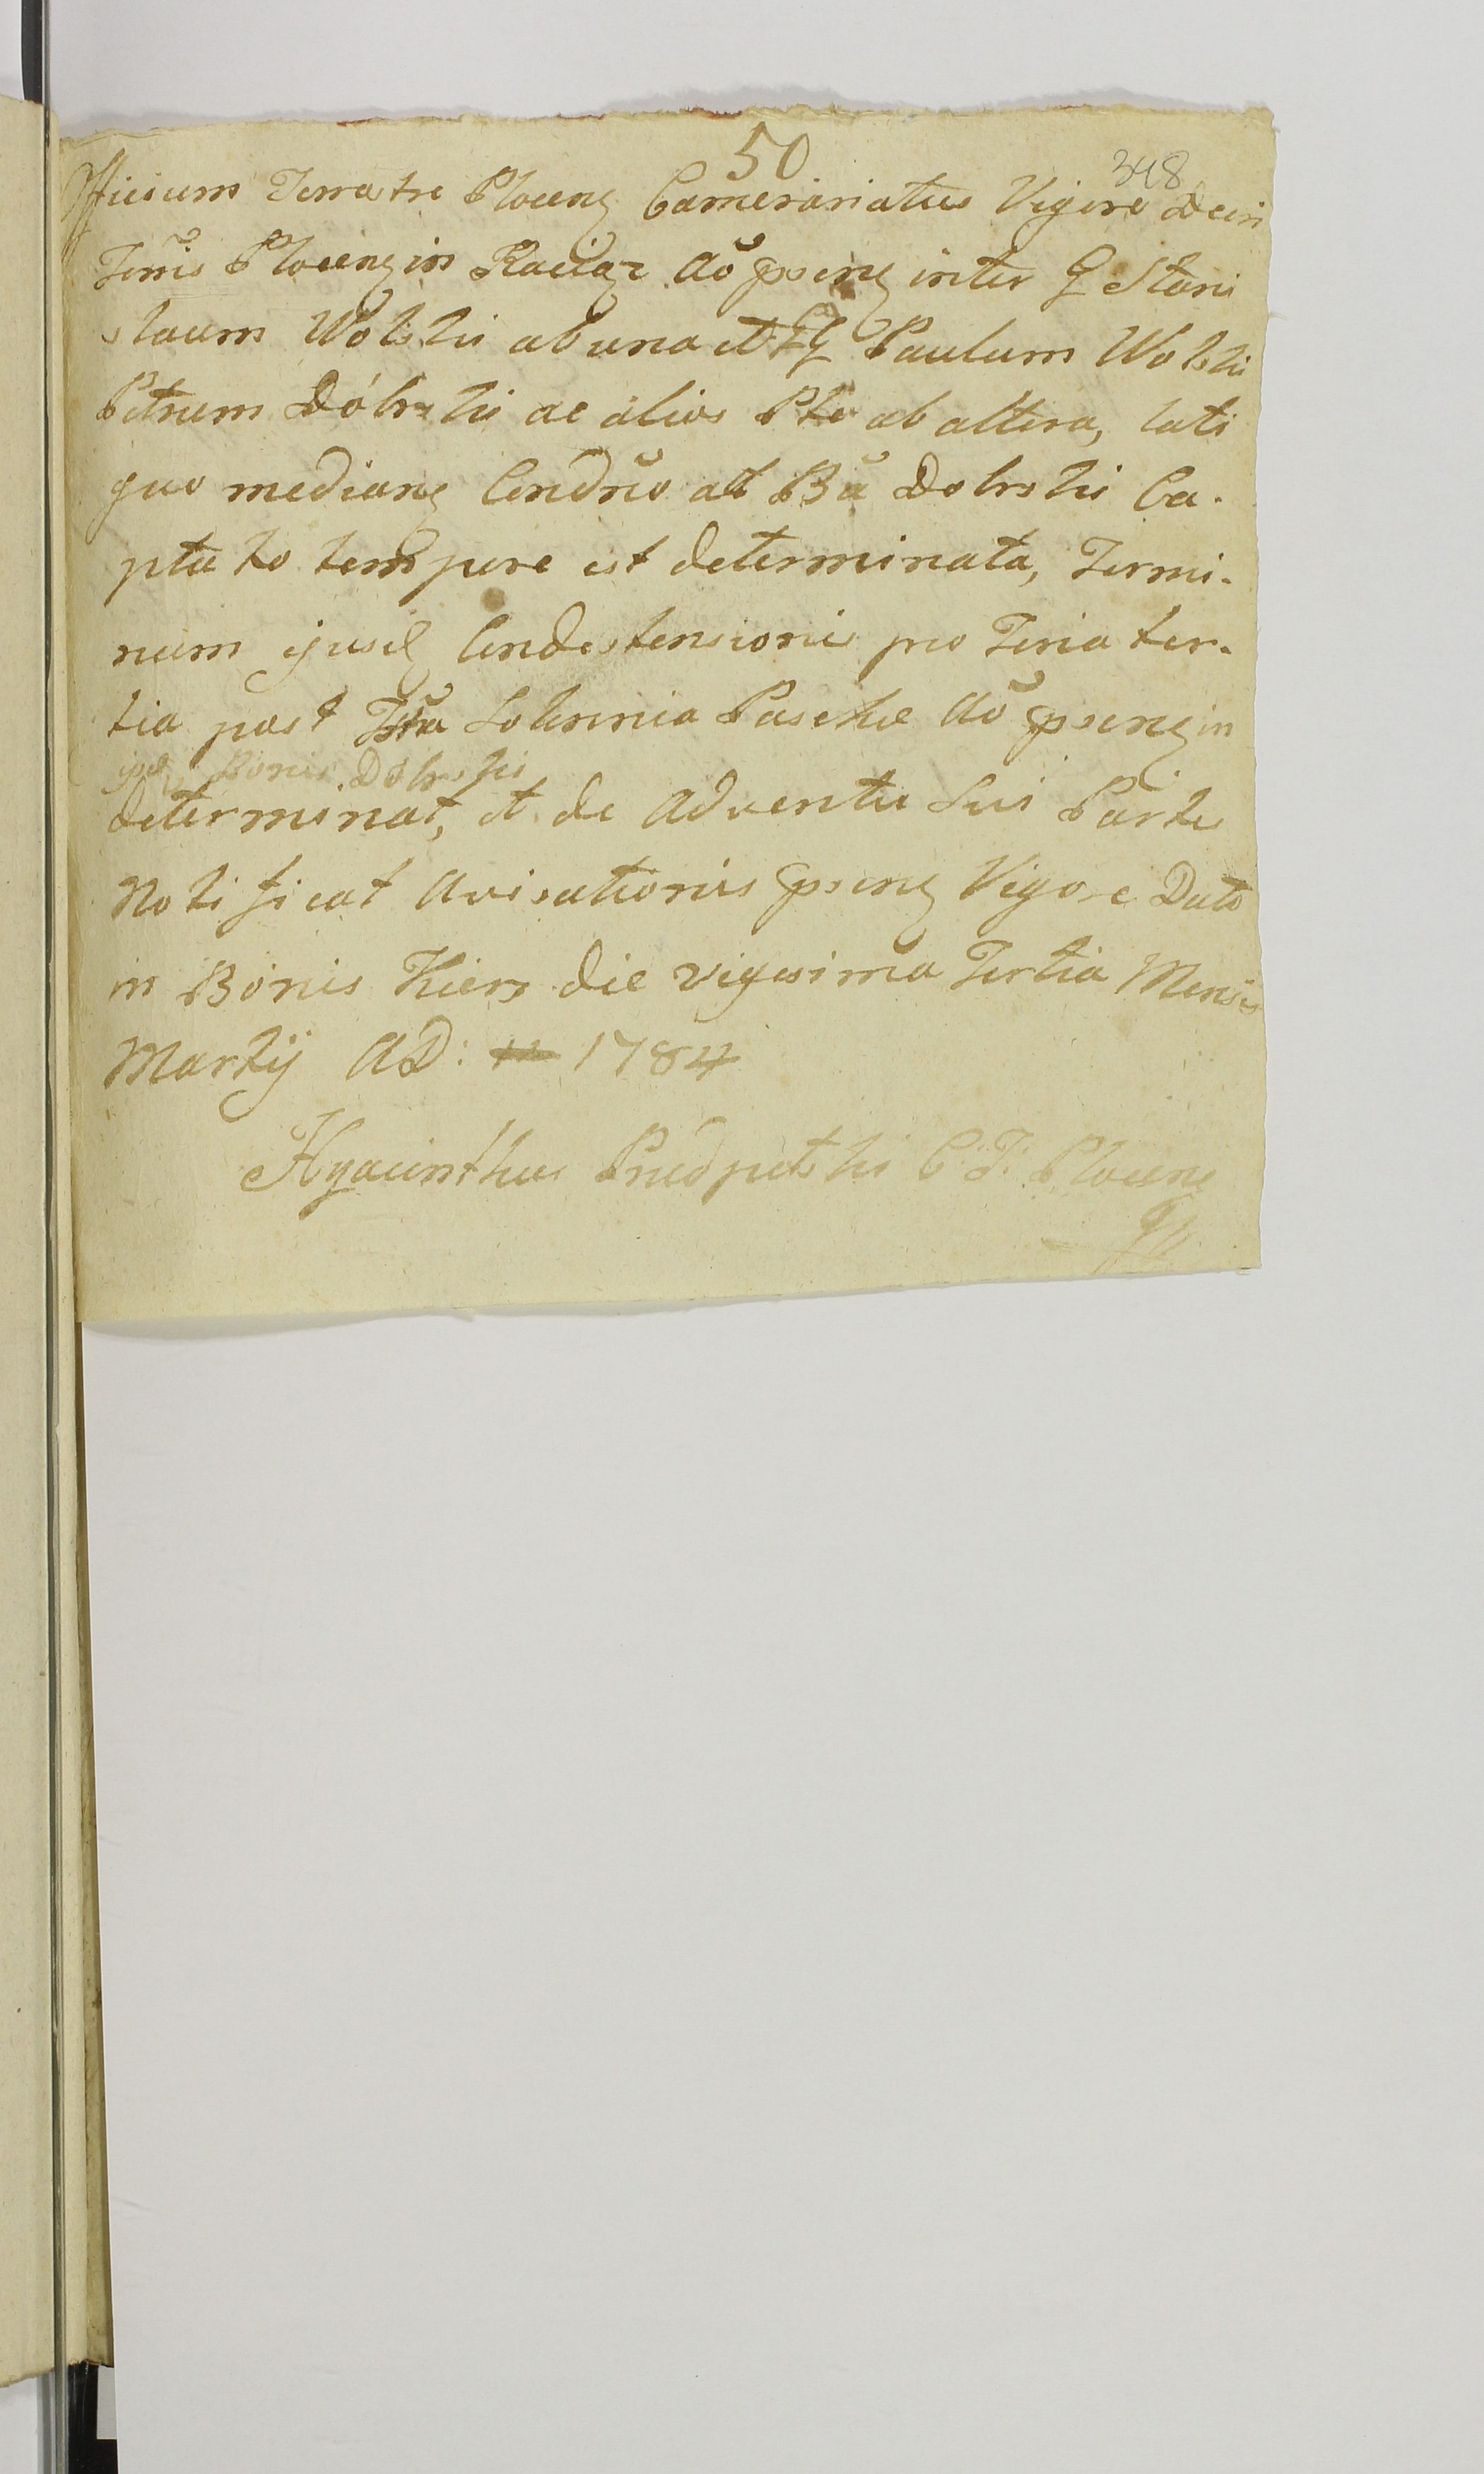 50
348
Officium Terrestre Plocens Camerariatus Vigore Decri
Terris Plocens in Raciąz Aō psens inter G Stani
slaum Wolski ab una et GG Paulum Wolski
Petrum Dóbrski ac alios Pto ab altera, lati
quo medians Condñō ad Bā Dobrski Ca-
ptato tempore est determinata, Termi-
num ejusd Condestensionis pro Feria ter-
tia post Fsta Solennia Paschae Aō psens in
ipsis Bonis Dóbrski
determinat, et de Adventu Sui Partes
Notificat Avisationis psens Vigore Dato
in Bonis Kiers die vigesima Tertia Mensis
Martij AD: 1784
Hyacinthus Przedpełski C: T: Plocens